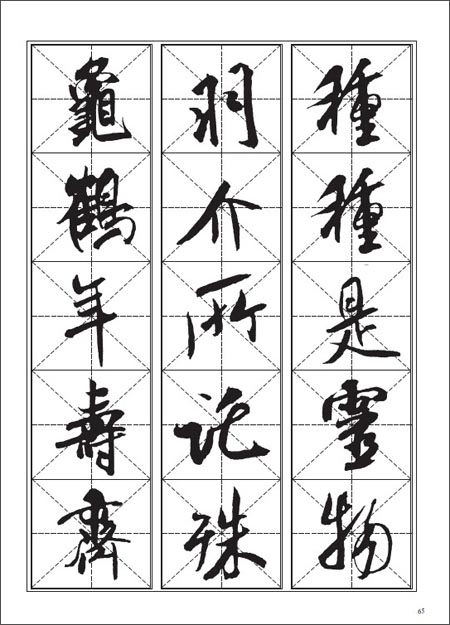 龜鶴年壽齊
羽介所託殊
種種是靈物
65